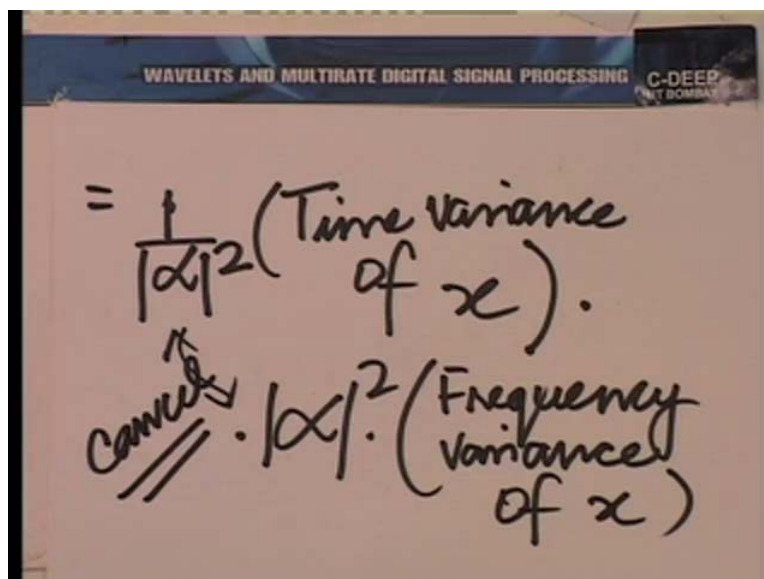 WAVELETS AND MULTIRATE DIGITAL SIGNAL PROCESSING
C-DEEP
IIT BOMBAY
= 1/|α|² (Time variance
of x).
cancel
. |α|.² (Frequency
variance
of x)